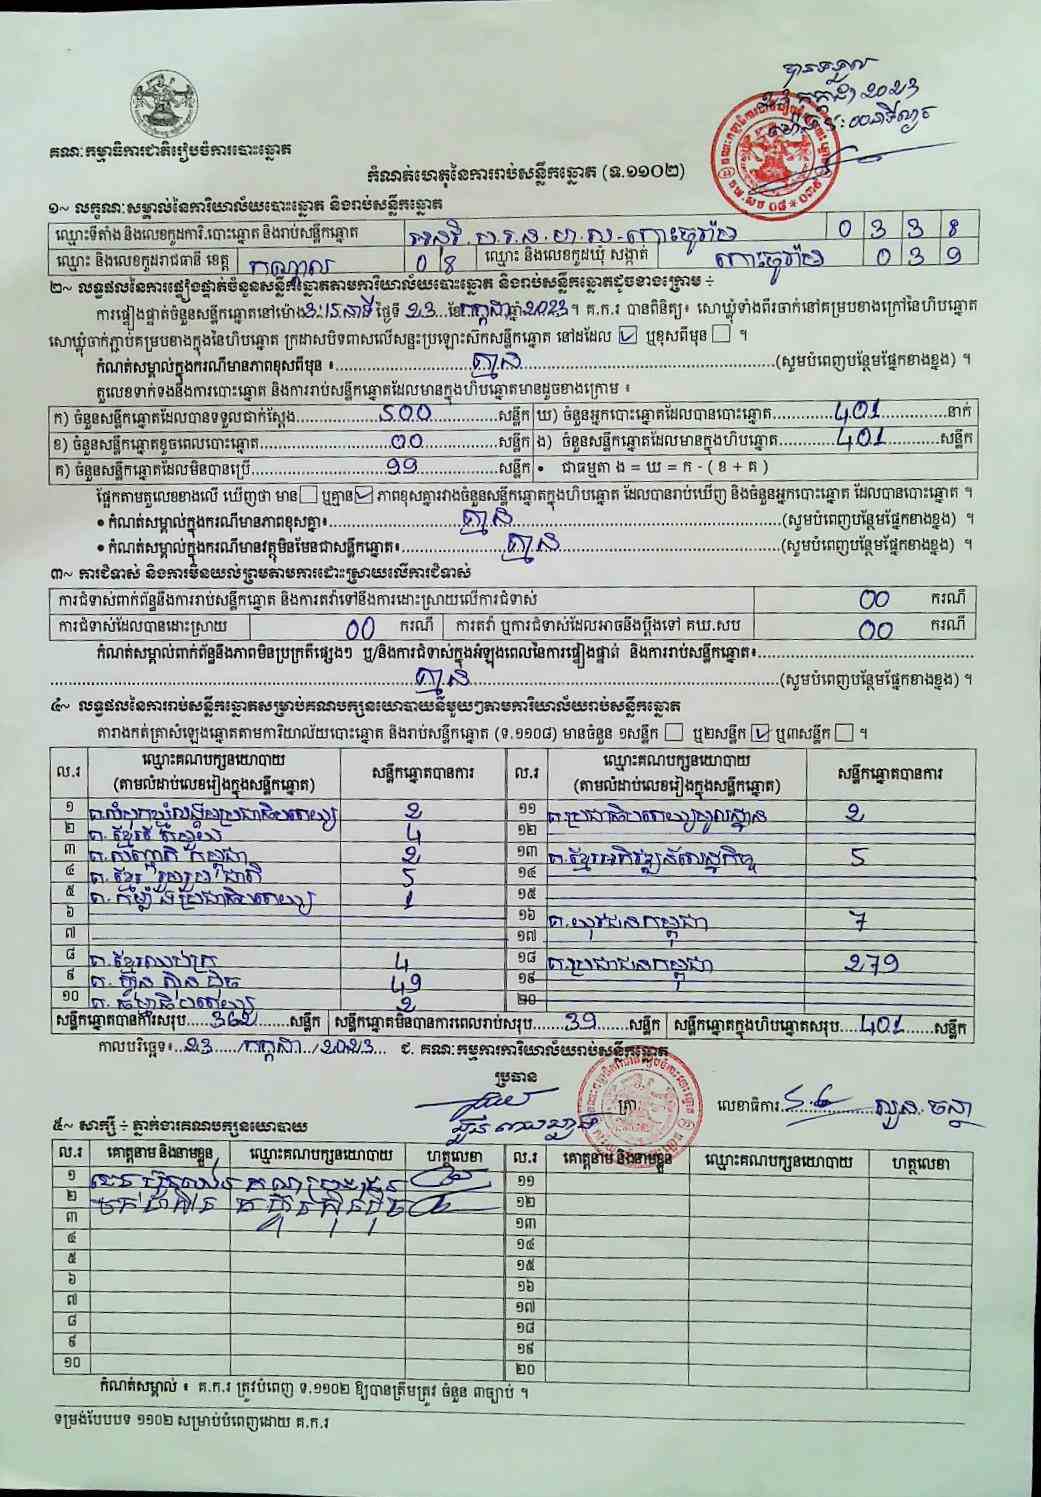 បានទទួល
23 កក្កដា 2023
គណៈកម្មាធិការជាតិរៀបចំការបោះឆ្នោត
កំណត់ហេតុនៃការរាប់សន្លឹកឆ្នោត (ទ.១១០២)
១~ លក្ខណៈសម្គាល់នៃការិយាល័យបោះឆ្នោត និងរាប់សន្លឹកឆ្នោត
ឈ្មោះទីតាំង និងលេខកូដការិ.បោះឆ្នោត និងរាប់សន្លឹកឆ្នោត 0 3 3 8
ឈ្មោះ និងលេខកូដរាជធានី ខេត្ត កណ្តាល 0 8 ឈ្មោះ និងលេខកូដឃុំ សង្កាត់ 0 3 9
២~ លទ្ធផលនៃការផ្ទៀងផ្ទាត់ចំនួនសន្លឹកឆ្នោតតាមការិយាល័យបោះឆ្នោត និងរាប់សន្លឹកឆ្នោតដូចខាងក្រោម ÷
ការផ្ទៀងផ្ទាត់ចំនួនសន្លឹកឆ្នោតនៅម៉ោង 3:15នាទី ថ្ងៃទី 23 ខែ កក្កដា ឆ្នាំ 2023 ។ គ.ក.រ បានពិនិត្យ៖ សោឃ្លុំទាំងពីរចាក់នៅគម្របខាងក្រៅនៃហិបឆ្នោត
សោឃ្លុំចាក់ភ្ជាប់គម្របខាងក្នុងនៃហិបឆ្នោត ក្រដាសបិទពាសលើសន្ទះប្រឡោះស៊កសន្លឹកឆ្នោត នៅដដែល ☑ ឬខុសពីមុន ☐ ។
កំណត់សម្គាល់ក្នុងករណីមានភាពខុសពីមុន ៖ គ្មាន (សូមបំពេញបន្ថែមផ្នែកខាងខ្នង) ។
តួលេខទាក់ទងនឹងការបោះឆ្នោត និងការរាប់សន្លឹកឆ្នោតដែលមានក្នុងហិបឆ្នោតមានដូចខាងក្រោម ៖
ក) ចំនួនសន្លឹកឆ្នោតដែលបានទទួលជាក់ស្តែង 500 សន្លឹក ឃ) ចំនួនអ្នកបោះឆ្នោតដែលបានបោះឆ្នោត 401 នាក់
ខ) ចំនួនសន្លឹកឆ្នោតខូចពេលបោះឆ្នោត 00 សន្លឹក ង) ចំនួនសន្លឹកឆ្នោតដែលមានក្នុងហិបឆ្នោត 401 សន្លឹក
គ) ចំនួនសន្លឹកឆ្នោតដែលមិនបានប្រើ 99 សន្លឹក • ជាធម្មតា ង = ឃ = ក - ( ខ + គ )
ផ្អែកតាមតួលេខខាងលើ ឃើញថា មាន ☐ ឬគ្មាន ☑ ភាពខុសគ្នារវាងចំនួនសន្លឹកឆ្នោតក្នុងហិបឆ្នោត ដែលបានរាប់ឃើញ និងចំនួនអ្នកបោះឆ្នោត ដែលបានបោះឆ្នោត ។
• កំណត់សម្គាល់ក្នុងករណីមានភាពខុសគ្នា៖ គ្មាន (សូមបំពេញបន្ថែមផ្នែកខាងខ្នង) ។
• កំណត់សម្គាល់ក្នុងករណីមានវត្ថុមិនមែនជាសន្លឹកឆ្នោត៖ គ្មាន (សូមបំពេញបន្ថែមផ្នែកខាងខ្នង) ។
៣~ ការជំទាស់ និងការមិនយល់ព្រមតាមការដោះស្រាយលើការជំទាស់
ការជំទាស់ពាក់ព័ន្ធនឹងការរាប់សន្លឹកឆ្នោត និងការតវ៉ាទៅនឹងការដោះស្រាយលើការជំទាស់ 00 ករណី
ការជំទាស់ដែលបានដោះស្រាយ 00 ករណី ការតវ៉ា ឬការជំទាស់ដែលអាចនឹងប្តឹងទៅ គឃ.សប 00 ករណី
កំណត់សម្គាល់ពាក់ព័ន្ធនឹងភាពមិនប្រក្រតីផ្សេងៗ ឬ/និងការជំទាស់ក្នុងអំឡុងពេលនៃការផ្ទៀងផ្ទាត់ និងការរាប់សន្លឹកឆ្នោត៖
គ្មាន (សូមបំពេញបន្ថែមផ្នែកខាងខ្នង) ។
៤~ លទ្ធផលនៃការរាប់សន្លឹកឆ្នោតសម្រាប់គណបក្សនយោបាយនីមួយៗតាមការិយាល័យរាប់សន្លឹកឆ្នោត
តារាងកត់ត្រាសំឡេងឆ្នោតតាមការិយាល័យបោះឆ្នោត និងរាប់សន្លឹកឆ្នោត (ទ.១១០៨) មានចំនួន ១សន្លឹក ☐ ឬ២សន្លឹក ☑ ឬ៣សន្លឹក ☐ ។
ល.រ ឈ្មោះគណបក្សនយោបាយ (តាមលំដាប់លេខរៀងក្នុងសន្លឹកឆ្នោត) សន្លឹកឆ្នោតបានការ ល.រ ឈ្មោះគណបក្សនយោបាយ (តាមលំដាប់លេខរៀងក្នុងសន្លឹកឆ្នោត) សន្លឹកឆ្នោតបានការ
១ 2 ១១ 2
២ 4 ១២
៣ 2 ១៣ គ.ខ្មែរអភិវឌ្ឍន៍សេដ្ឋកិច្ច 5
៤ គ.ខ្មែររួបរួមជាតិ 5 ១៤
៥ គ.កម្លាំងប្រជាធិបតេយ្យ 1 ១៥
៦ ១៦ គ.យុវជនកម្ពុជា 7
៧ ១៧
៨ គ.ខ្មែរឈប់ក្រ 4 ១៨ គ.ប្រជាជនកម្ពុជា 279
៩ គ.ហ៊្វុនស៊ិនប៉ិច 49 ១៩
១០ 2 ២០
សន្លឹកឆ្នោតបានការសរុប 362 សន្លឹក សន្លឹកឆ្នោតមិនបានការពេលរាប់សរុប 39 សន្លឹក សន្លឹកឆ្នោតក្នុងហិបឆ្នោតសរុប 401 សន្លឹក
កាលបរិច្ឆេទ៖ 23 / កក្កដា / 2023 ជ. គណៈកម្មការការិយាល័យរាប់សន្លឹកឆ្នោត
ប្រធាន
ត្រា លេខាធិការ
៥~ សាក្សី ÷ ភ្នាក់ងារគណបក្សនយោបាយ
ល.រ គោត្តនាម និងនាមខ្លួន ឈ្មោះគណបក្សនយោបាយ ហត្ថលេខា ល.រ គោត្តនាម និងនាមខ្លួន ឈ្មោះគណបក្សនយោបាយ ហត្ថលេខា
១ ១១
២ គ ហ៊្វុនស៊ិនប៉ិច ១២
៣ ១៣
៤ ១៤
៥ ១៥
៦ ១៦
៧ ១៧
៨ ១៨
៩ ១៩
១០ ២០
កំណត់សម្គាល់ ៖ គ.ក.រ ត្រូវបំពេញ ទ.១១០២ ឱ្យបានត្រឹមត្រូវ ចំនួន ៣ច្បាប់ ។
ទម្រង់បែបបទ ១១០២ សម្រាប់បំពេញដោយ គ.ក.រ